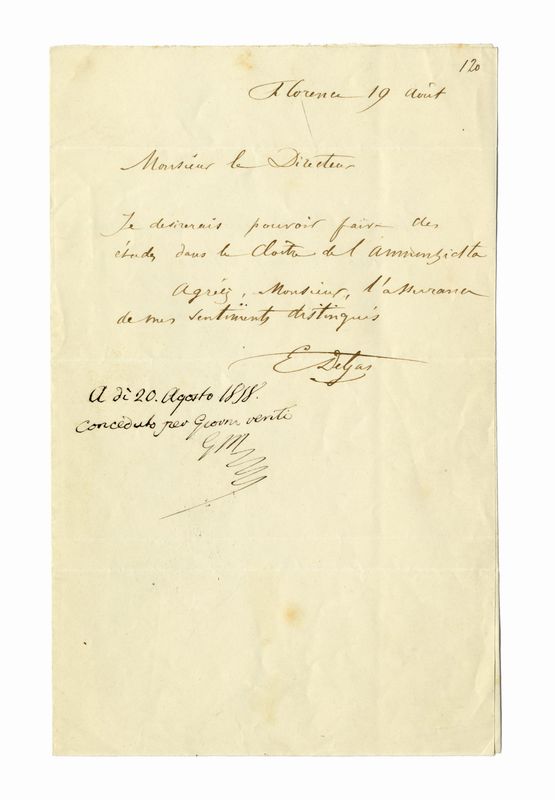 120
Florence 19 Août
Monsieur le Directeur
Je desirerais pouvoir faire des
études dans le Cloitre de l'Annunziata
Agréez, Monsieur, l'assurance
de mes sentiments distingués
E DeGas
A dì 20. Agosto 1858.
Conceduto per Giorni venti
GM